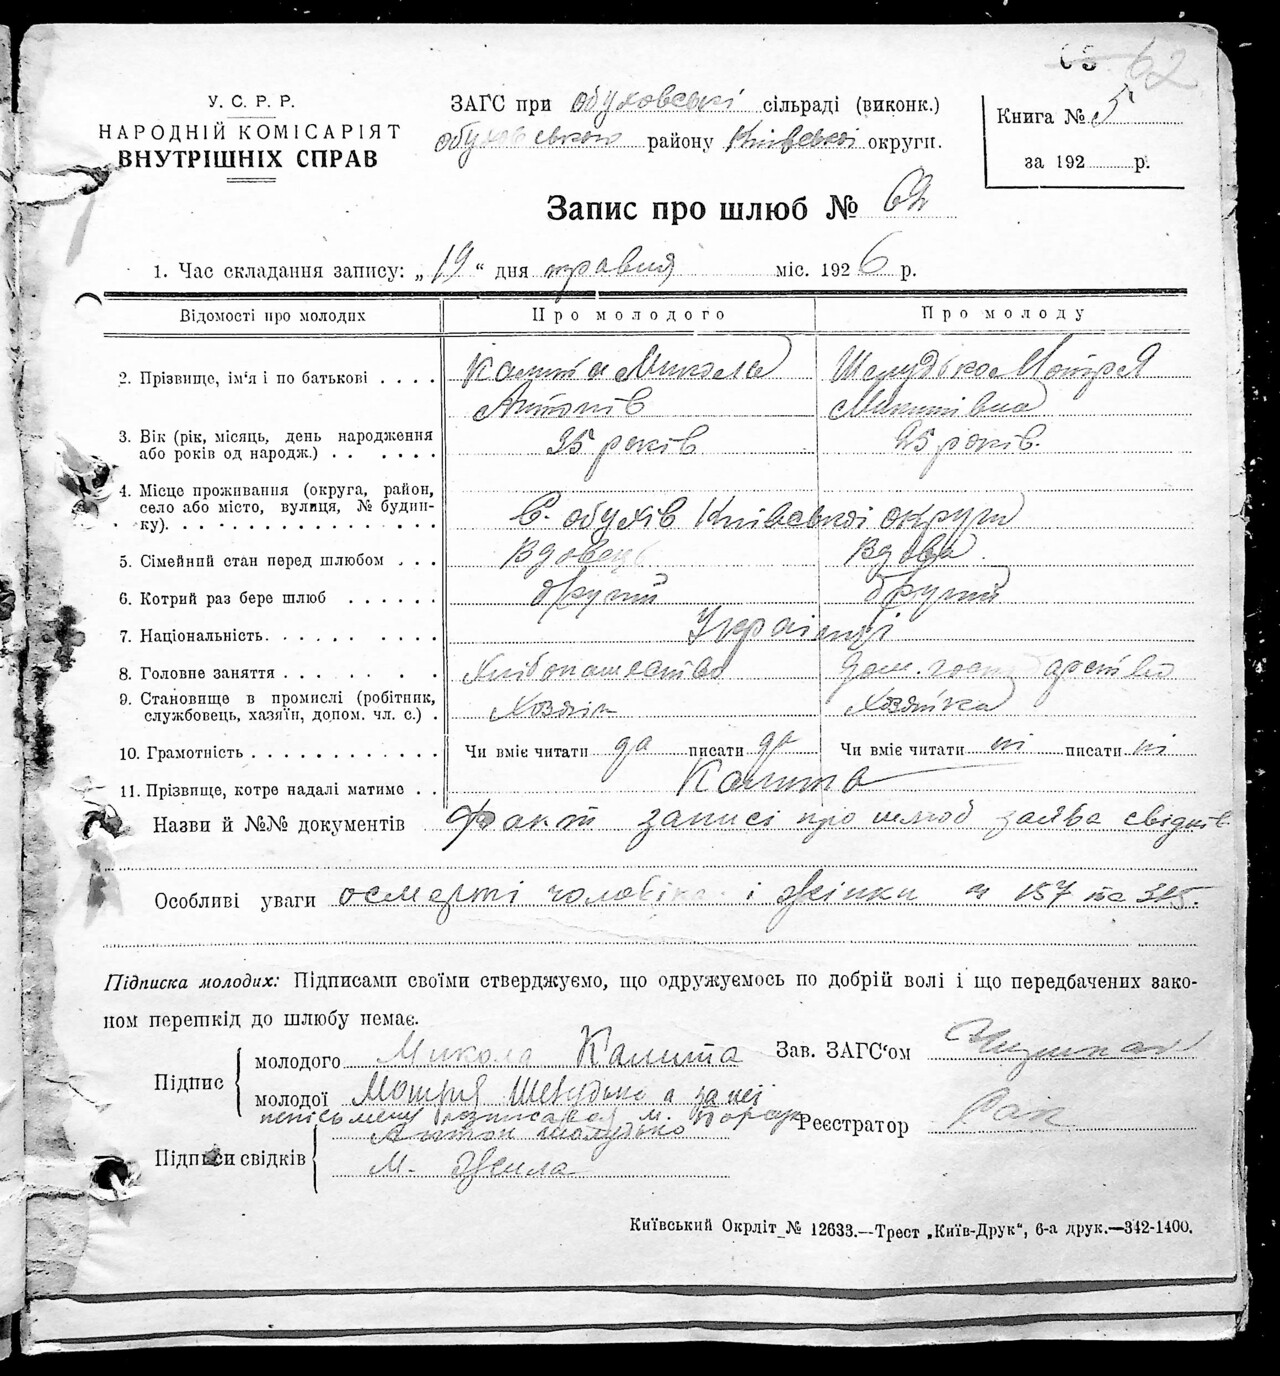 62
У. С. Р. Р.
НАРОДНІЙ КОМІСАРІЯТ
ВНУТРІШНІХ СПРАВ
ЗАГС при Обуховські сільраді (виконк.)
Обухівського району Київської округи.
Книга № 5
за 192 р.
Запис про шлюб № 62
1. Час складання запису: „19“ дня травня міс. 1926 р.
Відомості про молодих Про молодого Про молоду
2. Прізвище, ім'я і по батькові Калита Микола Шелудько Мотря
Антонів Микитівна
3. Вік (рік, місяць, день народження
або років од народж.) 35 років 25 років.
4. Місце проживання (округа, район,
село або місто, вулиця, № будин-
ку). С. Обухів Київської округи
5. Сімейний стан перед шлюбом Вдовець Вдова
6. Котрий раз бере шлюб другий другий
7. Національність. Українці
8. Головне заняття Хлібопашество Дом. господарство
9. Становище в промислі (робітник,
службовець, хазяїн, допом. чл. с.) Хозяін Хозяйка
10. Грамотність Чи вміє читати да писати да Чи вміє читати ні писати ні
11. Прізвище, котре надалі матиме Калита
Назви й №№ документів Факт записі про шлюб заява свідків
Особливі уваги о смерті чоловіка і жінки № 157 та 315.
Підписка молодих: Підписами своїми стверджуємо, що одружуємось по добрій волі і що передбачених зако-
ном перешкід до шлюбу немає.
Підпис молодого Микола Калита Зав. ЗАГС'ом
молодої Мотря Шелудько а за неї
неписьмену розписався М. Реєстратор Рак
Підписи свідків Антон Шолудько
М. Жила
Київський Окрліт № 12633.—Трест „Київ-Друк“, 6-а друк.—342-1400.